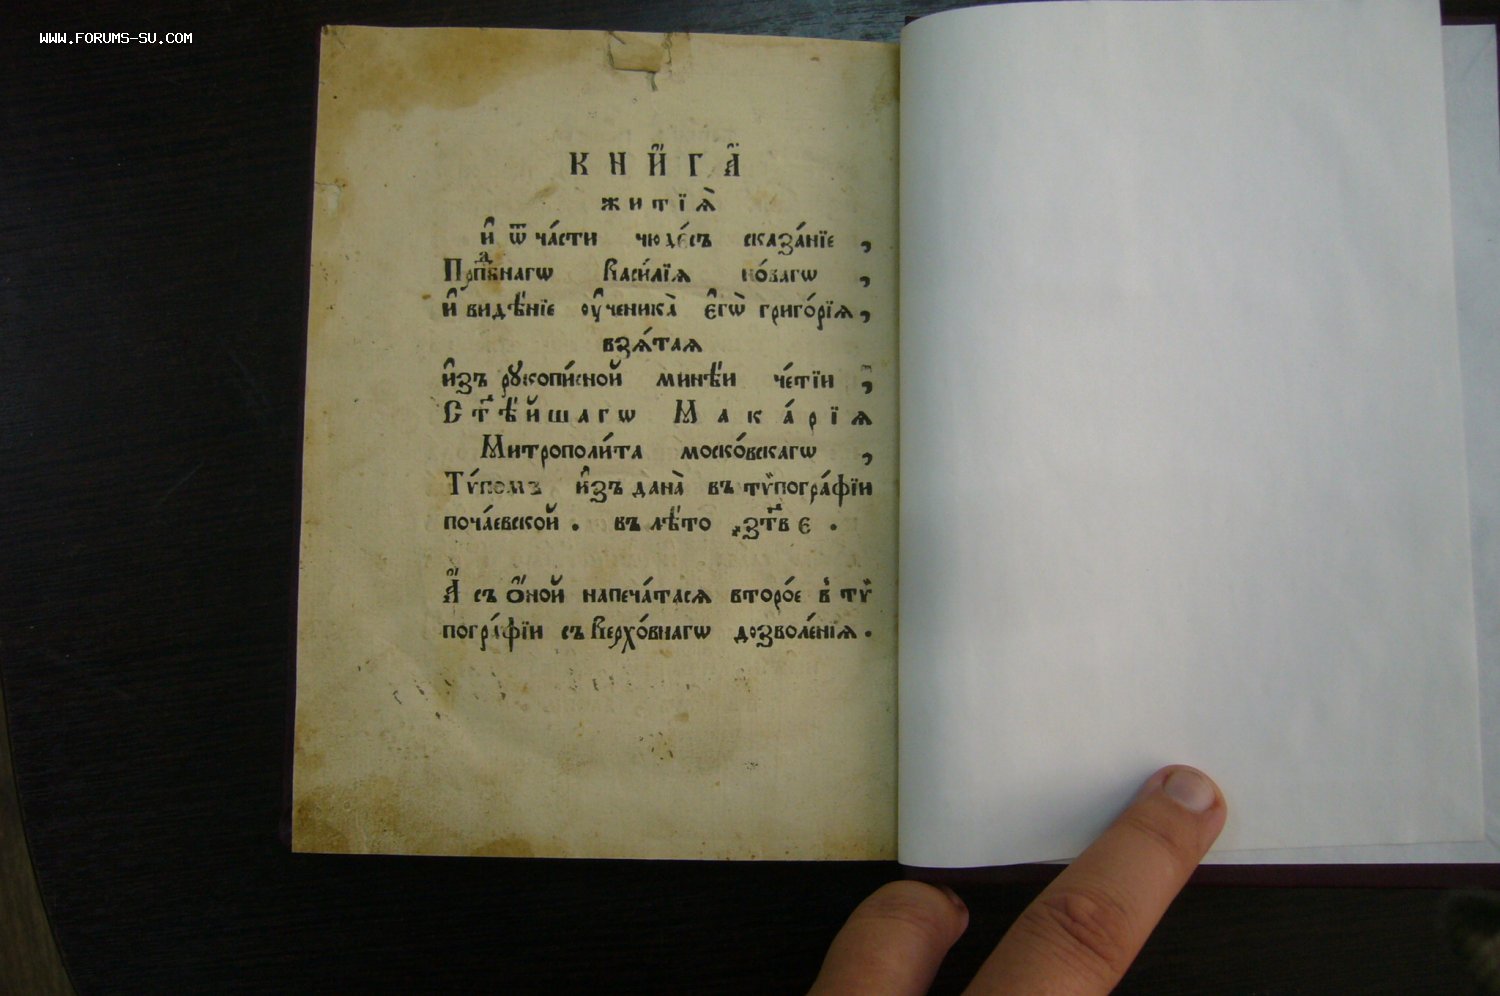 WWW.FORUMS-SU.COM
КНИ҆́ГА҆̀
житїѧ̀
и҆̀ ѿ ча́сти чюде́съ сказа́нїе ,
Прпⷣбнагѡ Васи́лїѧ но́вагѡ ,
и҆̀ видѣ́нїе оу҆ченика̀ є҆гѡ̀ григо́рїѧ ,
взѧ́таѧ
и҆́зъ рꙋкопи́сной минѣ́и че́тїи ,
Ст҃ѣ́йшагѡ Мака́рїѧ
Митрополи́та моско́вскагѡ ,
Тѵ́помъ и҆́зъ дана̀ въ тѷпогра́фїи
поча́евской . въ лѣ́то ҂зт҃в є .
А҆̀ съ Ѻ҆́ной напеча́тасѧ второ́е в̾ тѷ
погра́фїи съ Верхо́внагѡ дозволе́нїѧ .